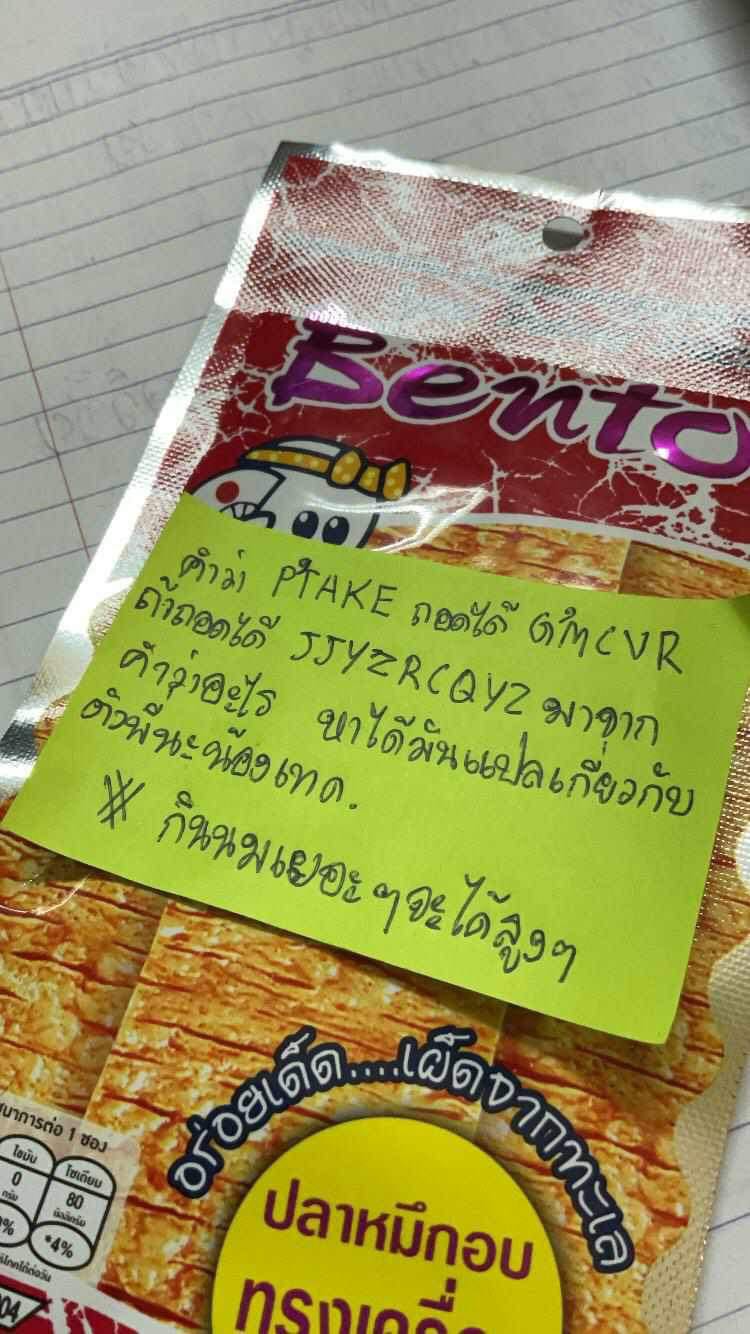 Bento
คำว่า PTAKE ถอดได้ GMCVR
ถ้าถอดได้ JJYZRCQYZ มาจาก
คำว่าอะไร หาได้มันแปลเกี่ยวกับ
ตัวพี่นะน้องเทค.
※ กินนมเยอะๆจะได้สูงๆ
อร่อยเด็ด....เผ็ดจากทะเล
ปลาหมึกอบ
นาการต่อ 1 ซอง
ไขมัน โซเดียม
0 80
กรัม มิลลิกรัม
*4%